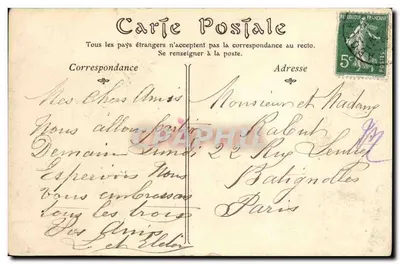 Carte Postale
Tous les pays étrangers n'acceptent pas la correspondance au recto.
Se renseigner à la poste.
Correspondance
Adresse
Mes Chers Amis
Nous allons
Demain Lundi
Esperons Nous
Vous embrassons
tous les trois
Vos Amis
Monsieur et Madame
Rabut
22 Rue
Batignolles
Paris
5c